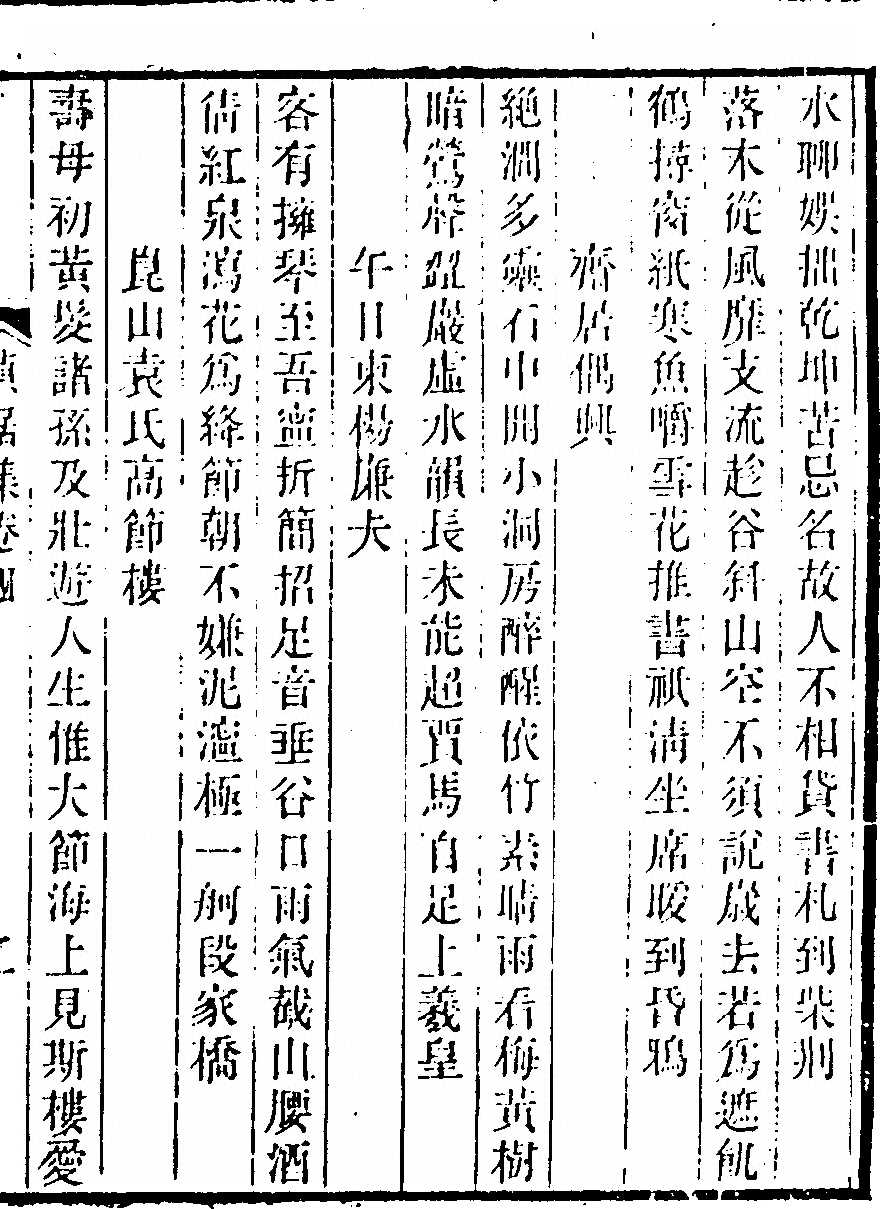 水聊娛拙乾坤苦忌名故人不相貸書札到柴荆
落木從風靡支流趁谷斜山空不須說歲去若爲遮飢
鶴掠窗紙寒魚嚼雪花推書祇清坐席暖到昏鴉
齋居偶興
絶澗多靈石中開小洞房醉醒依竹素晴雨看梅黄樹
暗鶯聲澀巖虛水韻長未能超賈馬自足上羲皇
午日東楊廉夫
客有擁琴至吾當折簡招足音垂谷口雨氣截山腰酒
倩紅泉瀉花爲絳節朝不嫌泥滬極一舸段家橋
崑山袁氏高節樓
壽母初黄髮諸孫及壯遊人生惟大節海上見斯樓愛
貞居集卷四